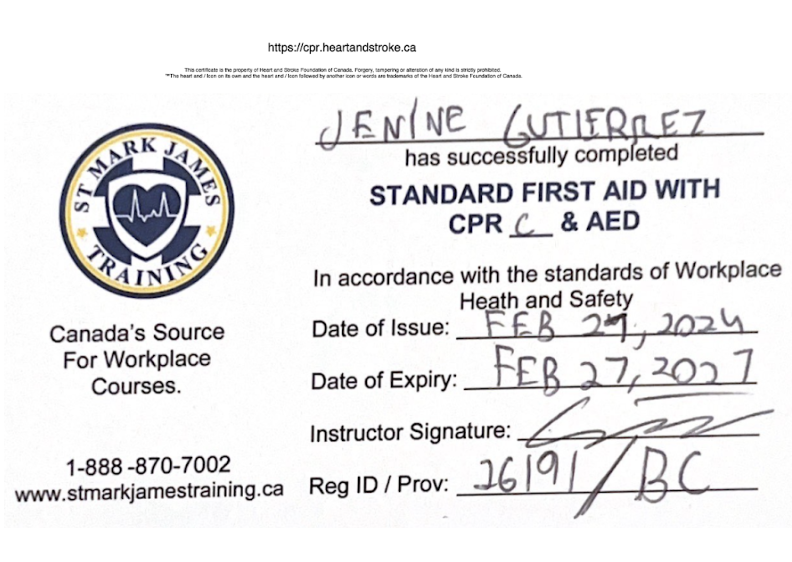 https://cpr.heartandstroke.ca
This certificate is the property of Heart and Stroke Foundation of Canada. Forgery, tampering or alteration of any kind is strictly prohibited.
™The heart and / Icon on its own and the heart and / Icon followed by another icon or words are trademarks of the Heart and Stroke Foundation of Canada.
ST MARK JAMES
TRAINING
Canada's Source
For Workplace
Courses.
1-888 -870-7002
www.stmarkjamestraining.ca
JENINE GUTIERREZ
has successfully completed
STANDARD FIRST AID WITH
CPR C & AED
In accordance with the standards of Workplace
Heath and Safety
Date of Issue: FEB 27, 2024
Date of Expiry: FEB 27, 2027
Instructor Signature:
Reg ID / Prov: 26191/BC